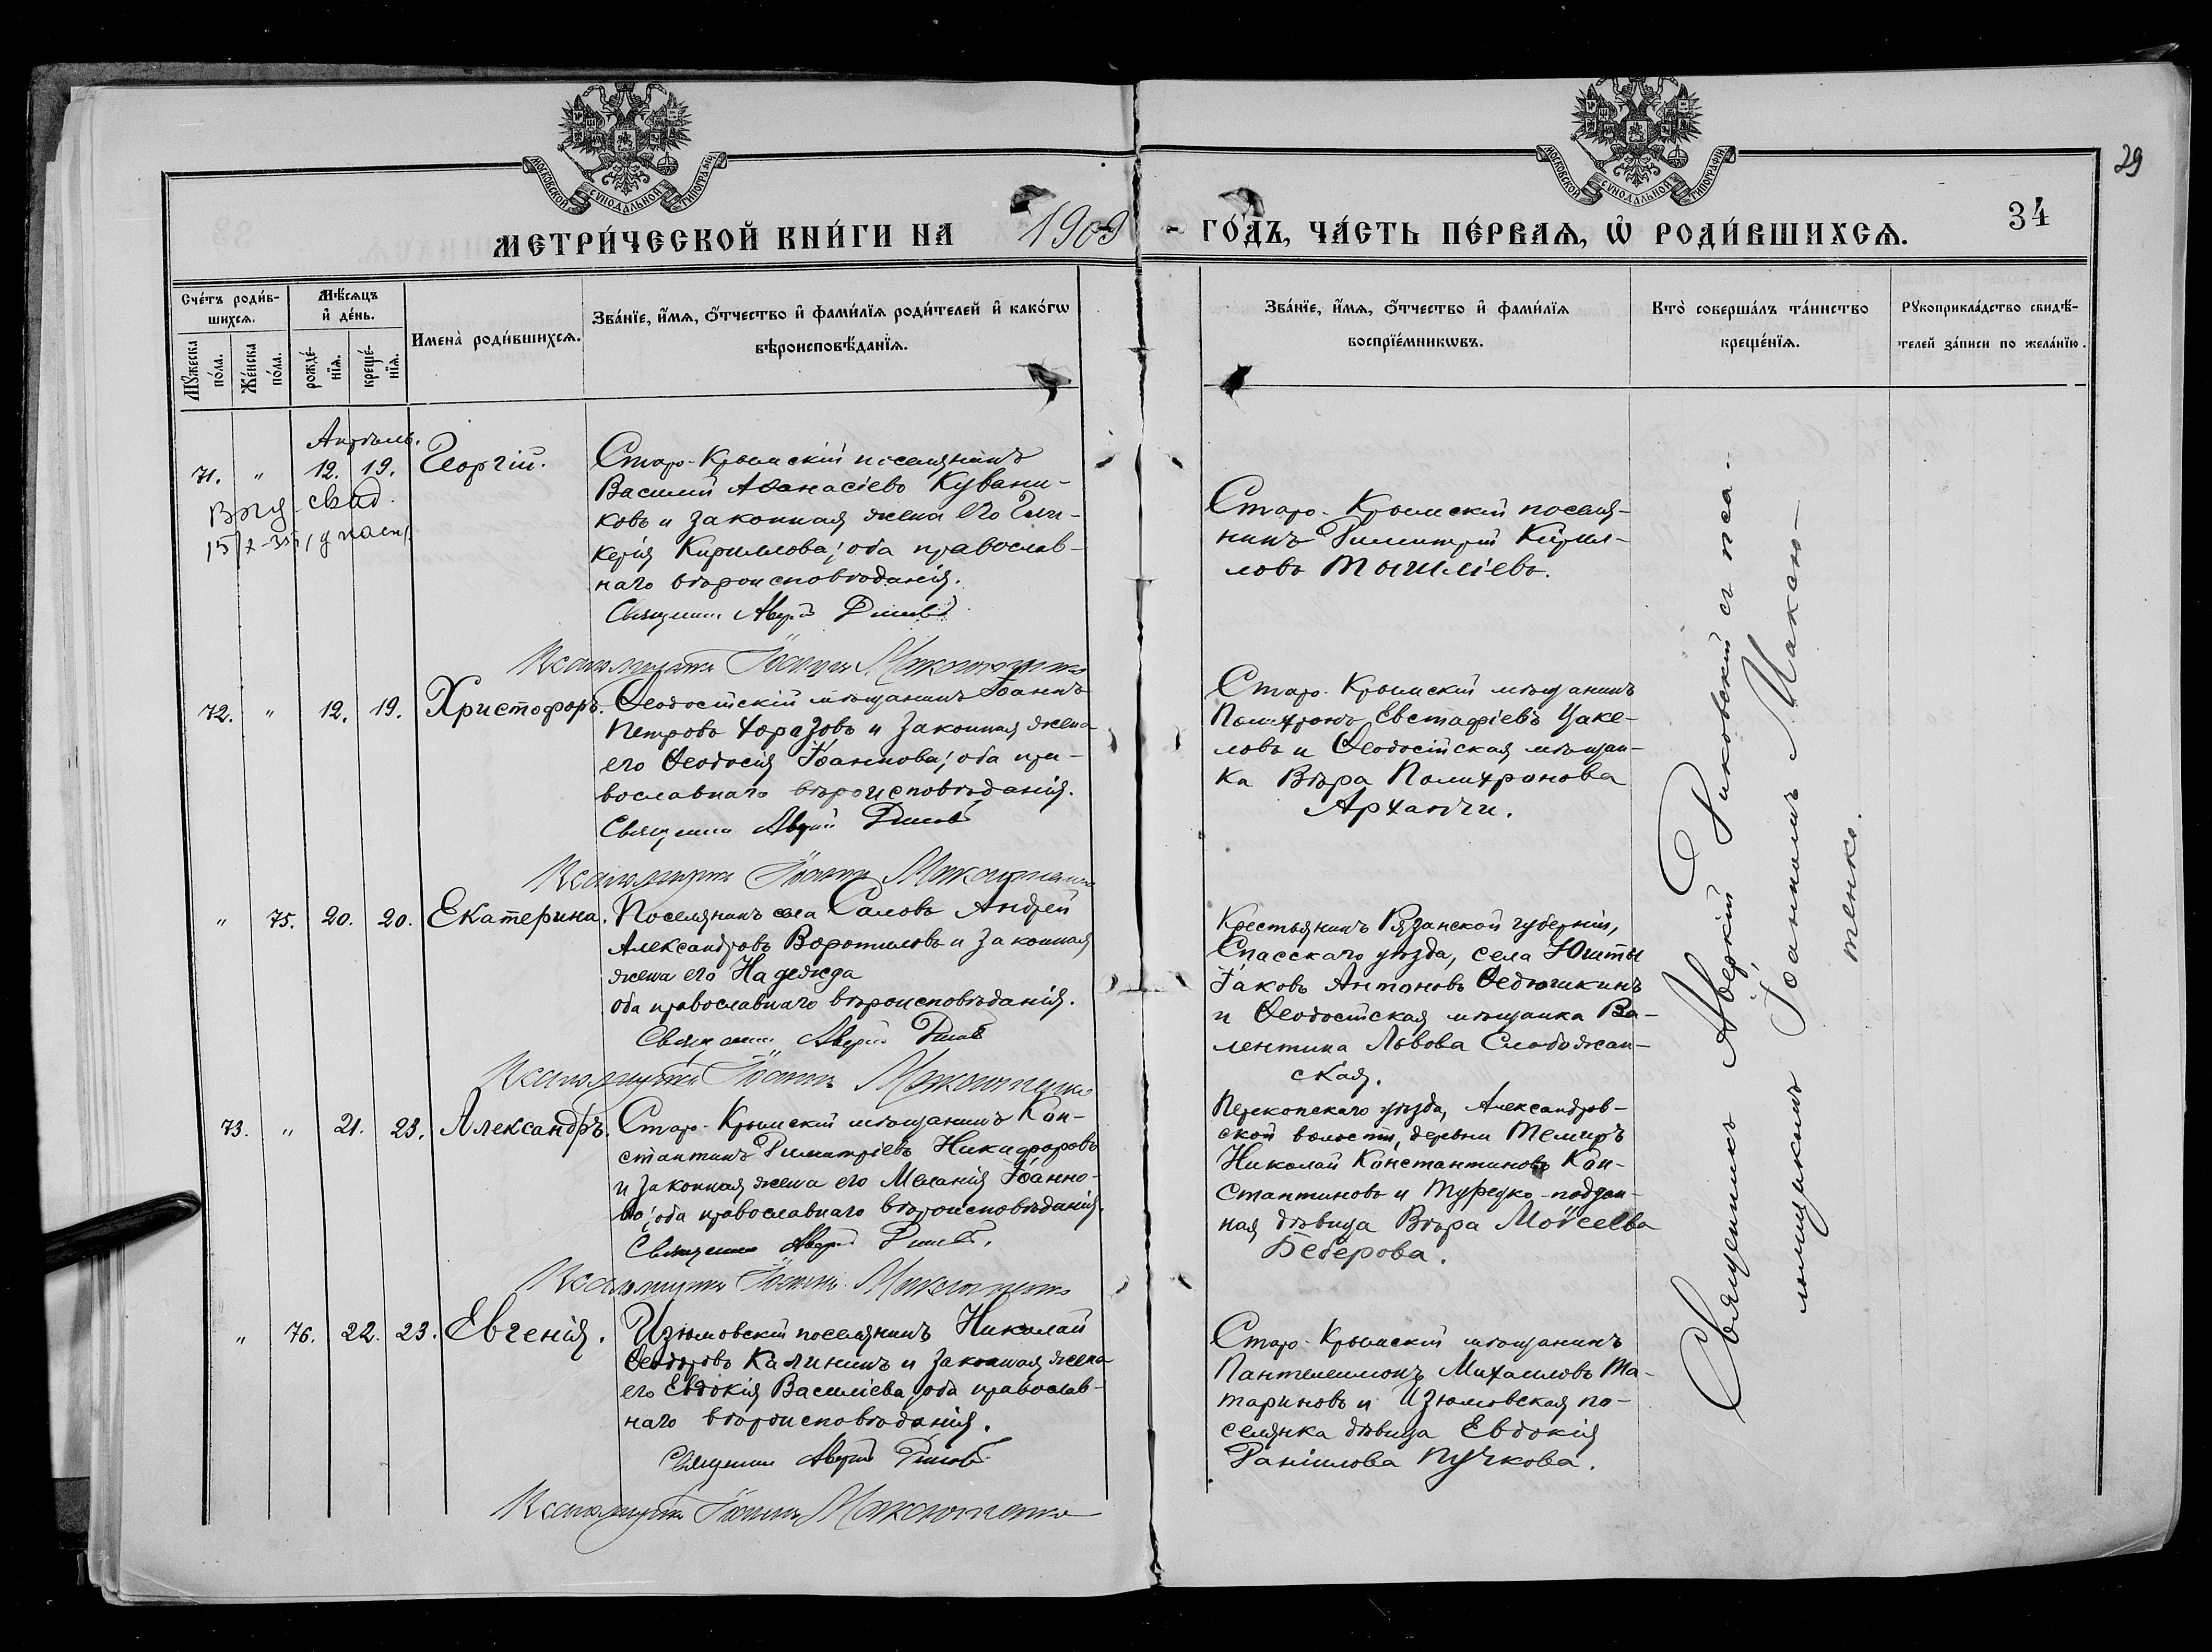 29
МОСКОВСКОЙ СѴНОДАЛЬНОЙ ТИПОГРАФІИ
МОСКОВСКОЙ СѴНОДАЛЬНОЙ ТИПОГРАФІИ
МЕТРИ́ЧЕСКОЙ КНИ́ГИ НА 1909 ГО́ДЪ, ЧА́СТЬ ПЕ́РВАѦ, Ѽ РОДИ́ВШИХСѦ.
34
Сче́тъ роди́в-
шихсѧ.
Мꙋ́жеска по́ла.
Же́нска по́ла.
Мѣ́сѧцъ и҆ де́нь.
рожде́-
нїѧ.
креще́-
нїѧ.
И҆мена̀ роди́вшихсѧ.
Зва́нїе, и҆́мѧ, ѻ҆́тчество и҆ фами́лїѧ роди́телей и҆ како́гѡ
вѣроисповѣ́данїѧ.
Зва́нїе, и҆́мѧ, ѻ҆́тчество и҆ фами́лїѧ
воспрїе́мникѡвъ.
Кто̀ соверша́лъ та́инство
креще́нїѧ.
Рꙋкоприкла́дство свидѣ́-
телей за́писи по жела́нїю.
Апрѣль.
71. " 12. 19. Георгій.
Старо-Крымскій поселянинъ
Василій Аѳанасіевъ Кувани-
ковъ и законная жена его Гли-
керія Кириллова; оба православ-
наго вѣроисповѣданія.
Священникъ Аверкій
Псаломщикъ Іоаннъ Максютенко
Старо-Крымскій поселя-
нинъ Димитрій Кирил-
ловъ
72. " 12. 19. Христофоръ.
Ѳеодосійскій мѣщанинъ Іоаннъ
Петровъ Хоразовъ и законная жена
его Ѳеодосія Іоаннова; оба пра-
вославнаго вѣроисповѣданія.
Священникъ Аверкій
Псаломщикъ Іоаннъ Максютенко
Старо-Крымскій мѣщанинъ
Полихронъ Евстафіевъ Цаке-
ловъ и Ѳеодосійская мѣщан-
ка Вѣра Полихронова
Арханджи.
" 75. 20. 20. Екатерина.
Поселянинъ села Саловъ Андрей
Александровъ Воротиловъ и законная
жена его Надежда
оба православнаго вѣроисповѣданія.
Священникъ Аверкій
Псаломщикъ Іоаннъ Максютенко
Крестьянинъ Рязанской губерніи,
Спасскаго уѣзда, села Юшты
Іаковъ Антоновъ Ѳедюшкинъ
и Ѳеодосійская мѣщанка Ва-
лентина Львова Слободжан-
ская.
73. " 21. 23. Александръ.
Старо-Крымскій мѣщанинъ Кон-
стантинъ Димитріевъ Никифоровъ
и законная жена его Меланія Іоанно-
ва; оба православнаго вѣроисповѣданія.
Священникъ Аверкій
Псаломщикъ Іоаннъ Максютенко
Перекопскаго уѣзда, Александров-
ской волости, деревни Темиръ
Николай Константиновъ Кон-
стантиновъ и Турецко-поддан-
ная дѣвица Вѣра Моѵсеева
Беберова.
" 76. 22. 23. Евгенія.
Изюмовскій поселянинъ Николай
Ѳеодоровъ Калининъ и законная жена
его Евдокія Василіева; оба православ-
наго вѣроисповѣданія.
Священникъ Аверкій
Псаломщикъ Іоаннъ Максютенко
Старо-Крымскій мѣщанинъ
Пантелеимонъ Михаиловъ Та-
тариновъ и Изюмовская по-
селянка дѣвица Евдокія
Даніилова Пучкова.
Священникъ Аверкій съ пса-
ломщикомъ Іоанномъ Максю-
тенко.